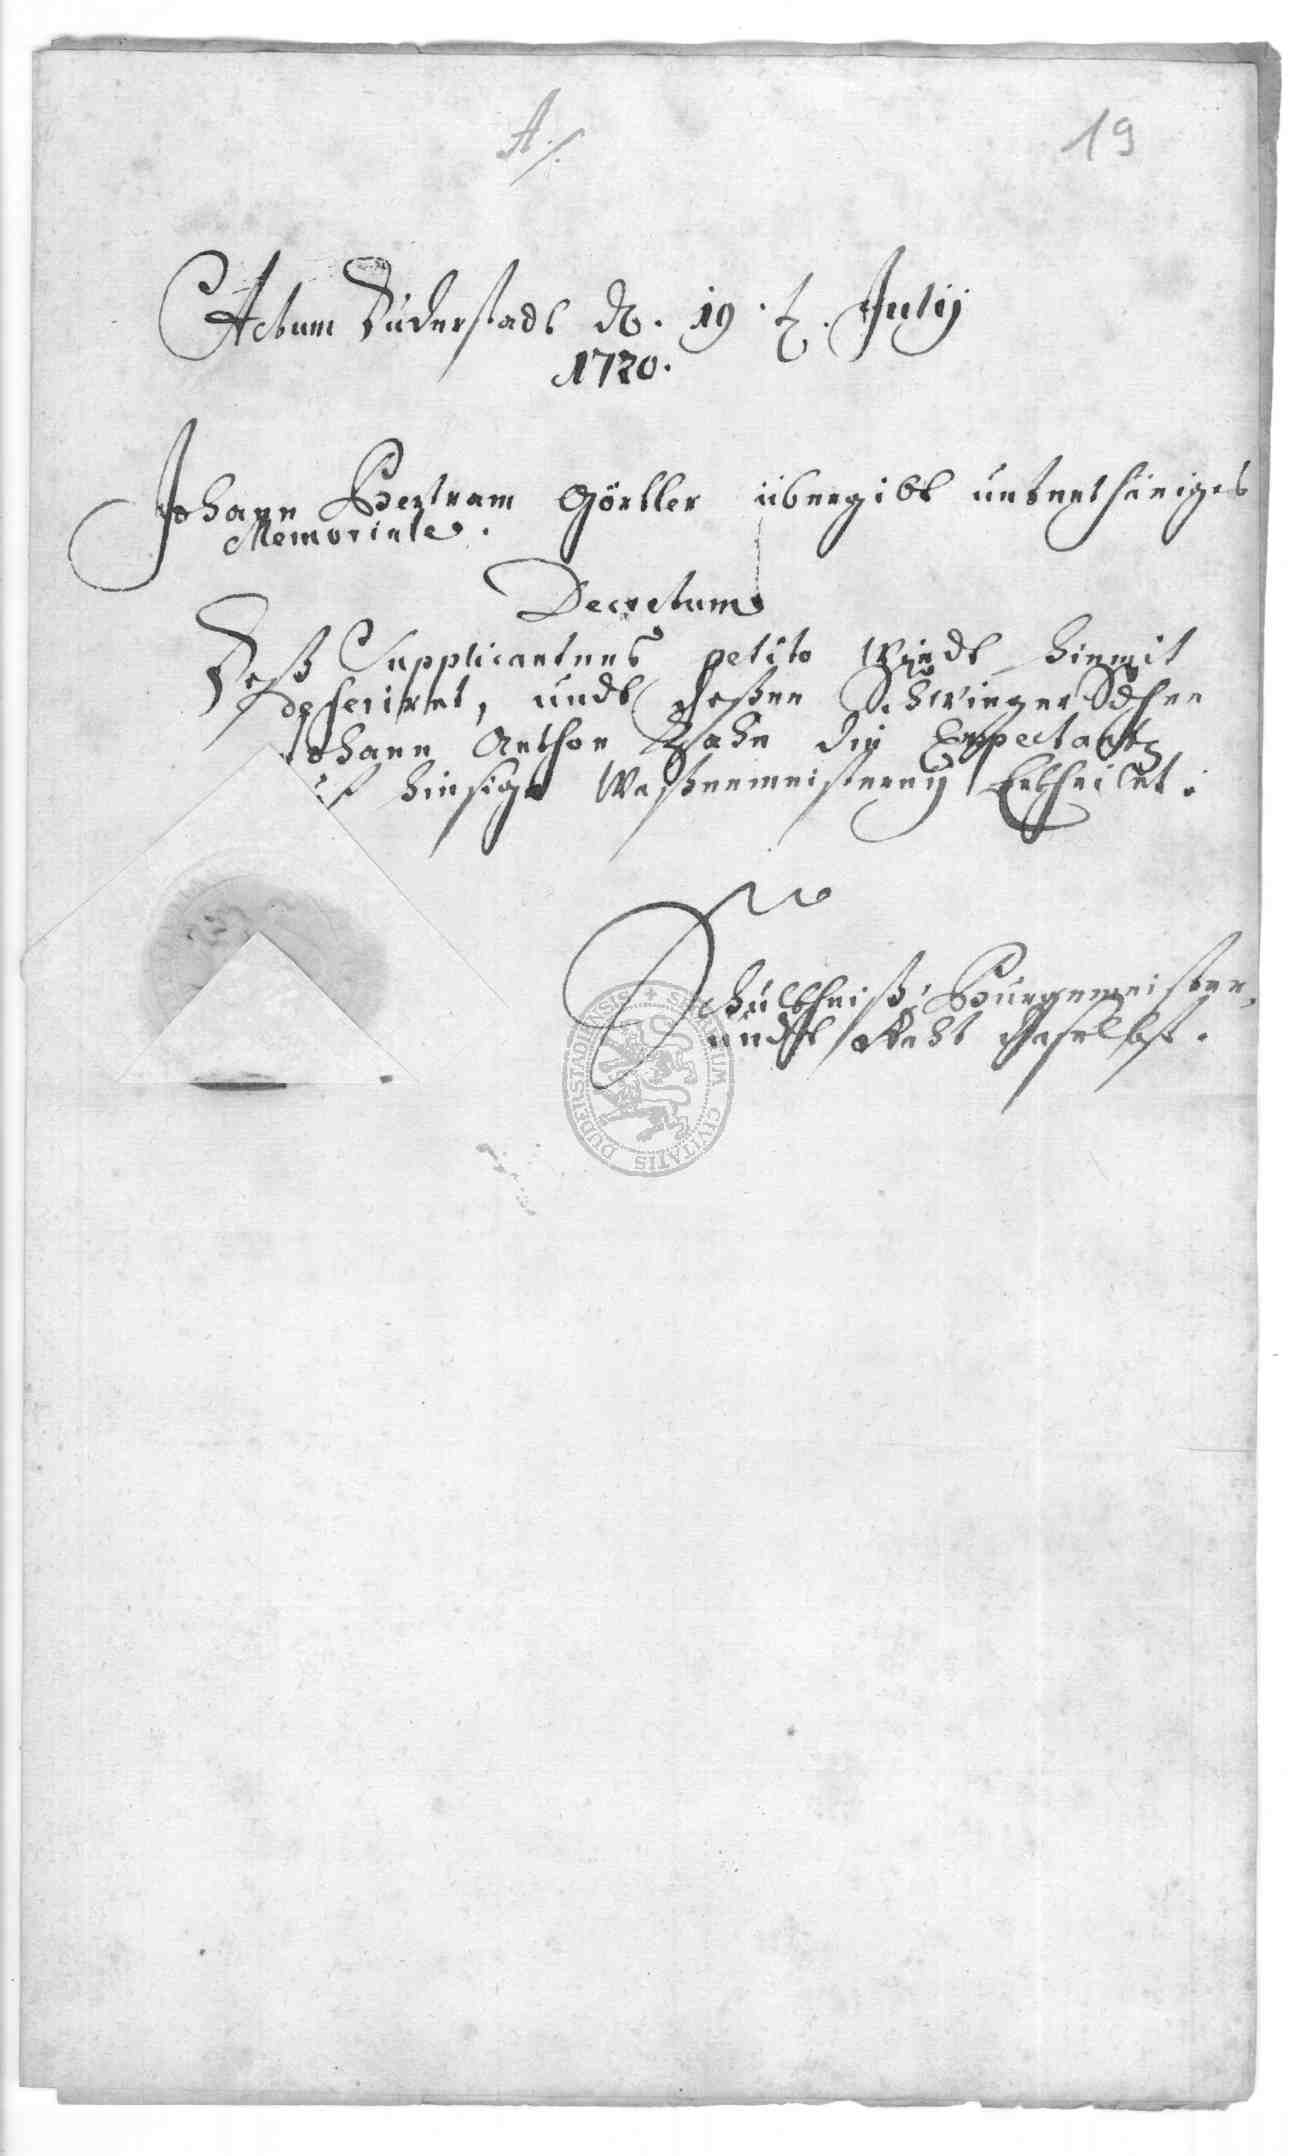 A./.
19
Actum Duderstadt d. 19. t. Julij
1720.
Johann Bertram Görtler übergibt unterthäniges
Memoriale.
Decretum
Deß Supplicantens petito wirdt hiemit
deferiret, undt deßen Schwieger Sohn
Johann Anthon Hahn die Expectantz
uf hiesige Waßenmeisterey Ertheilet.
Schultheiß, Bürgemeister,
undt Raht daselbst.
SECRETUM CIVITATIS DUDERSTADIENSIS